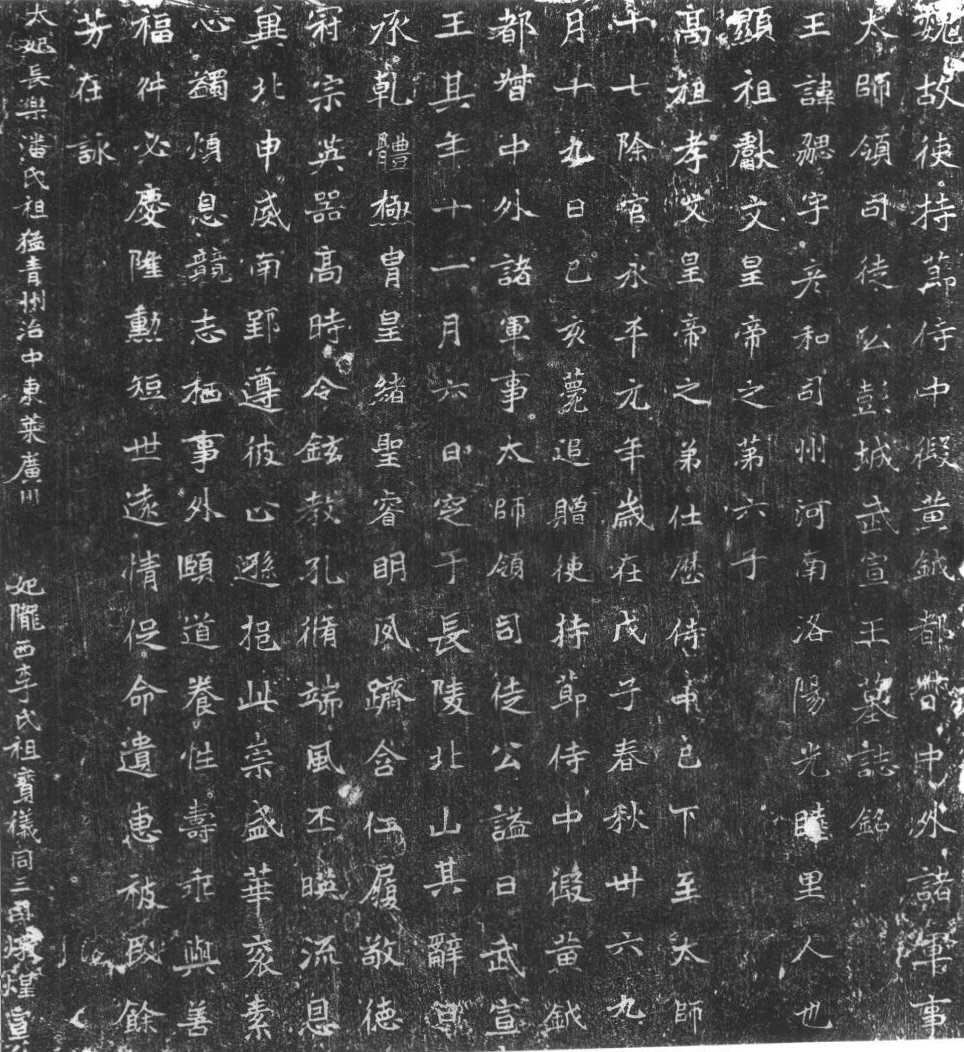 魏故使持節侍中假黃鉞都督中外諸軍事
太師領司徒公彭城武宣王墓誌銘
王諱勰字彦和司州河南洛陽光睦里人也
顯祖獻文皇帝之第六子
高祖孝文皇帝之弟仕歷侍中已下至太師
十七除官永平元年歲在戊子春秋卅六九
月十九日己亥薨追贈使持節侍中假黃鉞
都督中外諸軍事太師領司徒公謚曰武宣
王其年十一月六日窆于長陵北山其辭曰
承乾體極胄皇緒聖睿明夙躋含仁履敬德
冠宗英器高時令鉉教孔脩端風丕暎流恩
冀北申威南郢遵彼止遜挹此崇盛華衮素
心蠲煩息競志栖事外頤道養性壽乖與善
福舛必慶隆勳短世遠情促命遺惠被民餘
芳在詠
太妃長樂潘氏祖猛青州治中東萊廣川
妃隴西李氏祖寶儀同三司燉煌宣